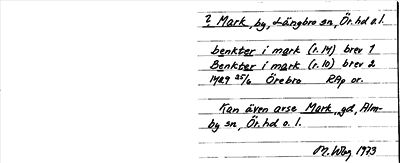 ? Mark, by, Längbro sn, Ör. hd o. l.
benkter i mark (r. 14) brev 1
Benkter i mark (r. 10) brev 2
1429 25/6 Örebro RAp or.
Kan även avse Mark, gd, Alm-
by sn, Ör. hd o. l.
M. Wbg 1973